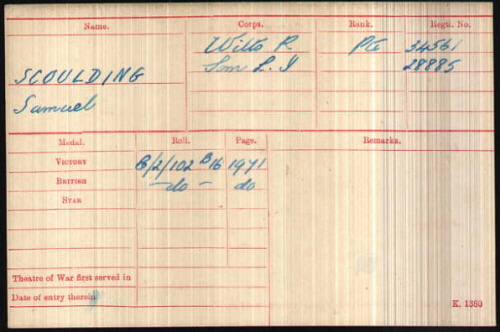 Name. Corps. Rank. Regtl. No.
Wilts R. Pte 34561
SCOULDING Som L.I 28885
Samuel
Medal. Roll. Page. Remarks.
VICTORY B/2/102 B16 1971
BRITISH -do- do
STAR
Theatre of War first served in
Date of entry therein
K. 1380